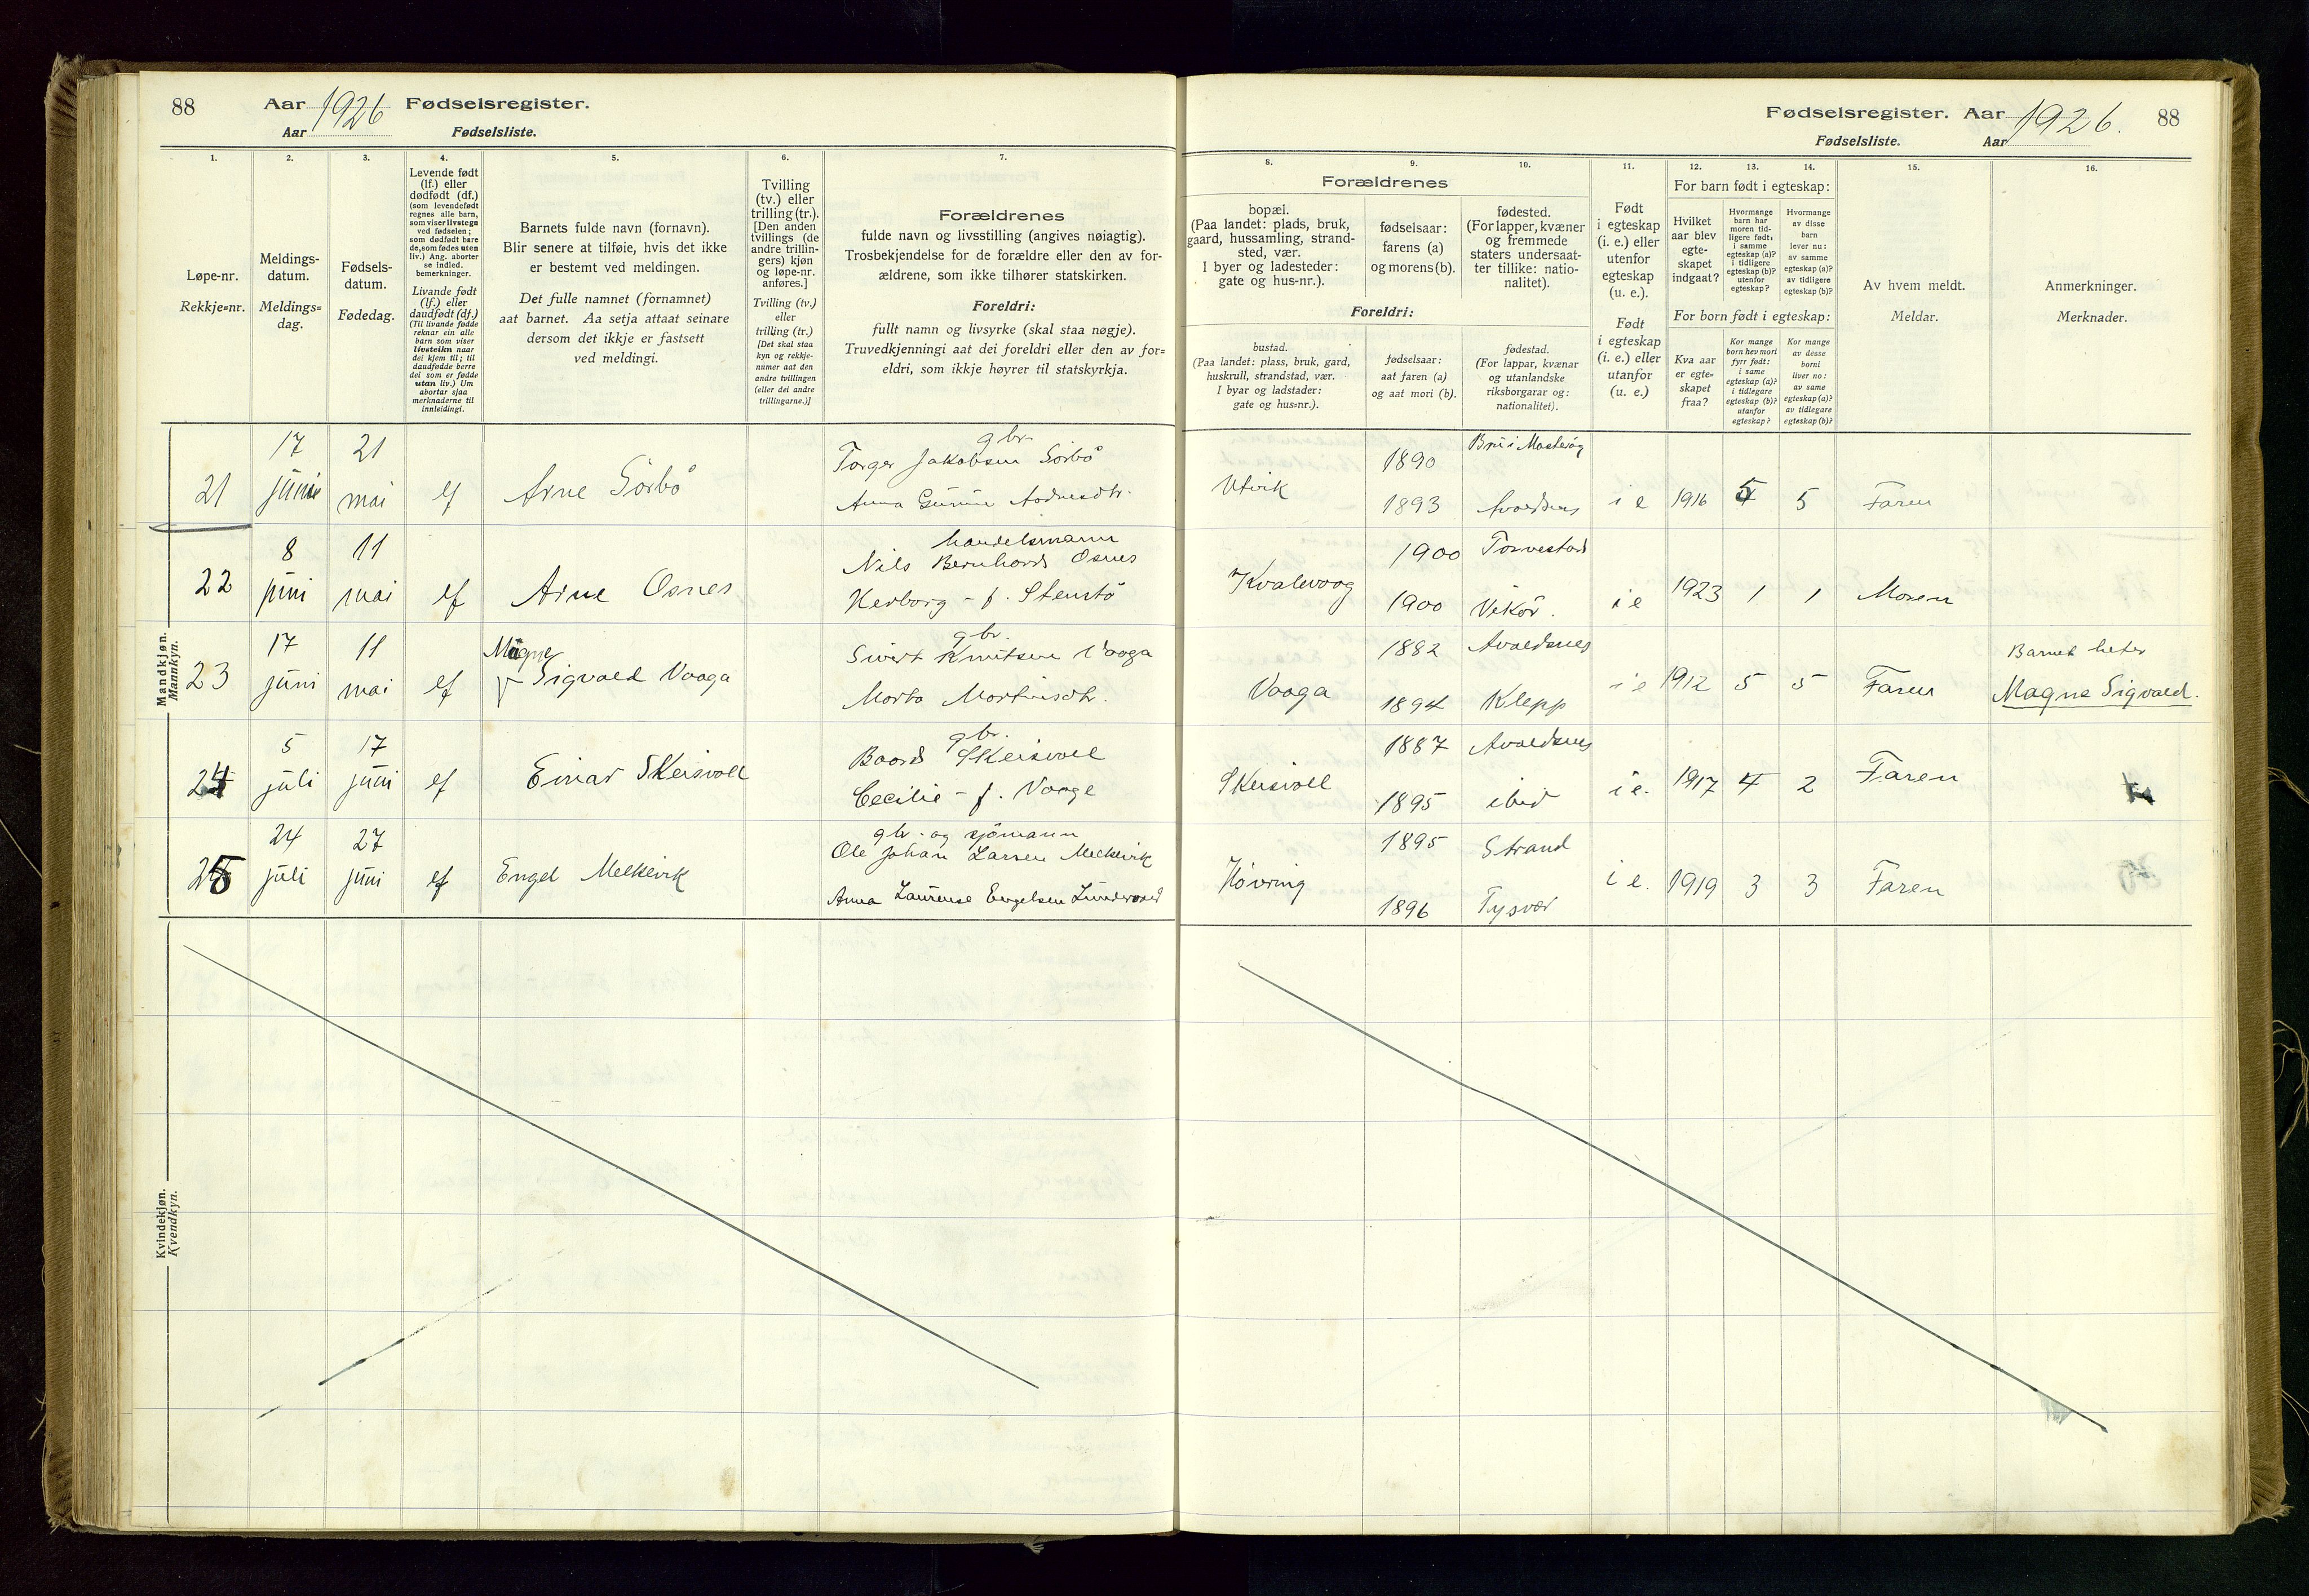 88 Aar 1926 Fødselsregister.
Aar Fødselsliste.
1. 2. 3. 4. 5. 6. 7.
Løpe-nr.
Rekkje=nr.
Meldings-
datum.
Meldings=
dag.
Fødsels-
datum.
Fødedag.
Levende født
(lf.) eller
dødfødt (df.)
(som levendefødt
regnes alle barn,
som viser livstegn
ved fødselen;
som dødfødt bare
de, som fødes uten
liv.) Ang. aborter
se indled.
bemerkninger.
Livande født
(lf.) eller
daudfødt (df.)
(Til livande fødde
reknar ein alle
barn som viser
livsteikn naar
dei kjem til; til
daudfødde berre
dei som er fødde
utan liv.) Um
abortar sjaa
merknaderne til
innleidingi.
Barnets fulde navn (fornavn).
Blir senere at tilføie, hvis det ikke
er bestemt ved meldingen.
Det fulle namnet (fornamnet)
aat barnet. Aa setja attaat seinare
dersom det ikkje er fastsett
ved meldingi.
Tvilling
(tv.) eller
trilling (tr.).
[Den anden
tvillings (de
andre trillin-
gers) kjøn
og løpe-nr.
anføres.]
Tvilling (tv.)
eller
trilling (tr.)
[Det skal staa
kyn og rekkje-
numer aat den
andre tvillingen
(eller dei andre
trillingarne.)]
Forældrenes
fulde navn og livsstilling (angives nøiagtig).
Trosbekjendelse for de forældre eller den av for-
ældrene, som ikke tilhører statskirken.
Foreldri:
fullt namn og livsyrke (skal staa nøgje).
Truvedkjenningi aat dei foreldri eller den av for=
eldri, som ikkje høyrer til statskyrkja.
Mandkjøn.
Mannkyn.
21 17 juni 21 mai lf Arne Sörbö
gbr.
Torger Jakobsen Sörbö
Anna Gurine
22 8 juni 11 mai lf Arne Osnes
handelsmann
Nils Bernhard Osnes
Herborg - f. Stenstö
23 17 juni 11 mai lf Magne
Sigvald Vaaga
gbr.
Sivert Knutsen Vaaga
Marta Martinsdtr.
24 5 juli 17 juni lf Einar Skeisvoll
gbr.
Baard Skeisvoll
Cecilie - f. Vaage
25 24 juli 27 juni lf Engel Melkevik
gbr. og sjömann
Ole Johan Larsen Melkevik
Anna Laurense Engelsen
Kvindekjøn.
Kvendkyn.
Fødselsregister. Aar 1926. 88
Fødselsliste. Aar
8. 9. 10. 11. 12. 13. 14. 15. 16.
Forældrenes
bopæl.
(Paa landet: plads, bruk,
gaard, hussamling, strand-
sted, vær.
I byer og ladesteder:
gate og hus-nr.).
fødselsaar:
farens (a)
og morens (b).
fødested.
(For lapper, kvæner
og fremmede
staters undersaat-
ter tillike: natio-
nalitet).
Foreldri:
bustad.
(Paa landet: plass, bruk, gard,
huskrull, strandstad, vær.
I byar og ladstader:
gate og hus=nr.).
fødselsaar:
aat faren (a)
og aat mori (b).
fødestad.
(For lappar, kvænar
og utanlandske
riksborgarar og:
nationalitet).
Født
i egteskap
(i. e.) eller
utenfor
egteskap
(u. e.).
Født
i egteskap
(i. e.) eller
utanfor
(u. e.)
For barn født i egteskap:
Hvilket
aar blev
egte-
skapet
indgaat?
Hvormange
barn har
moren tid-
ligere født,
i samme
egteskap (a)?
i tidligere
egteskap (b)?
utenfor
egteskap?
Hvormange
av disse
barn
lever nu:
av samme
egteskap (a)?
av tidligere
egteskap (b)?
For born født i egteskap:
Kva aar
er egte=
skapet
fraa?
Kor mange
born hev mori
fyrr født:
i same
egteskap (a)?
i tidlegare
egteskap (b)?
utanfor
egteskap?
Kor mange
av desse
borni
liver no:
av same
egteskap (a)?
av tidlegare
egteskap (b)?
Av hvem meldt.
Meldar.
Anmerkninger.
Merknader.
Utvik 1890
1893 Avaldsnes i e 1916 5 5 Faren
Kvalevaag 1900 Torvestad
1900 Vikör. i e 1923 1 1 Moren
Vaaga 1882 Avaldsnes
1894 Klepp i e 1912 5 5 Faren
Barnet heter
Magne Sigvald.
Skeisvoll 1887 Avaldsnes
1895 ibid i e. 1917 4 2 Faren
Hövring 1895 Strand
1896 Tysvær i e. 1919 3 3 Faren